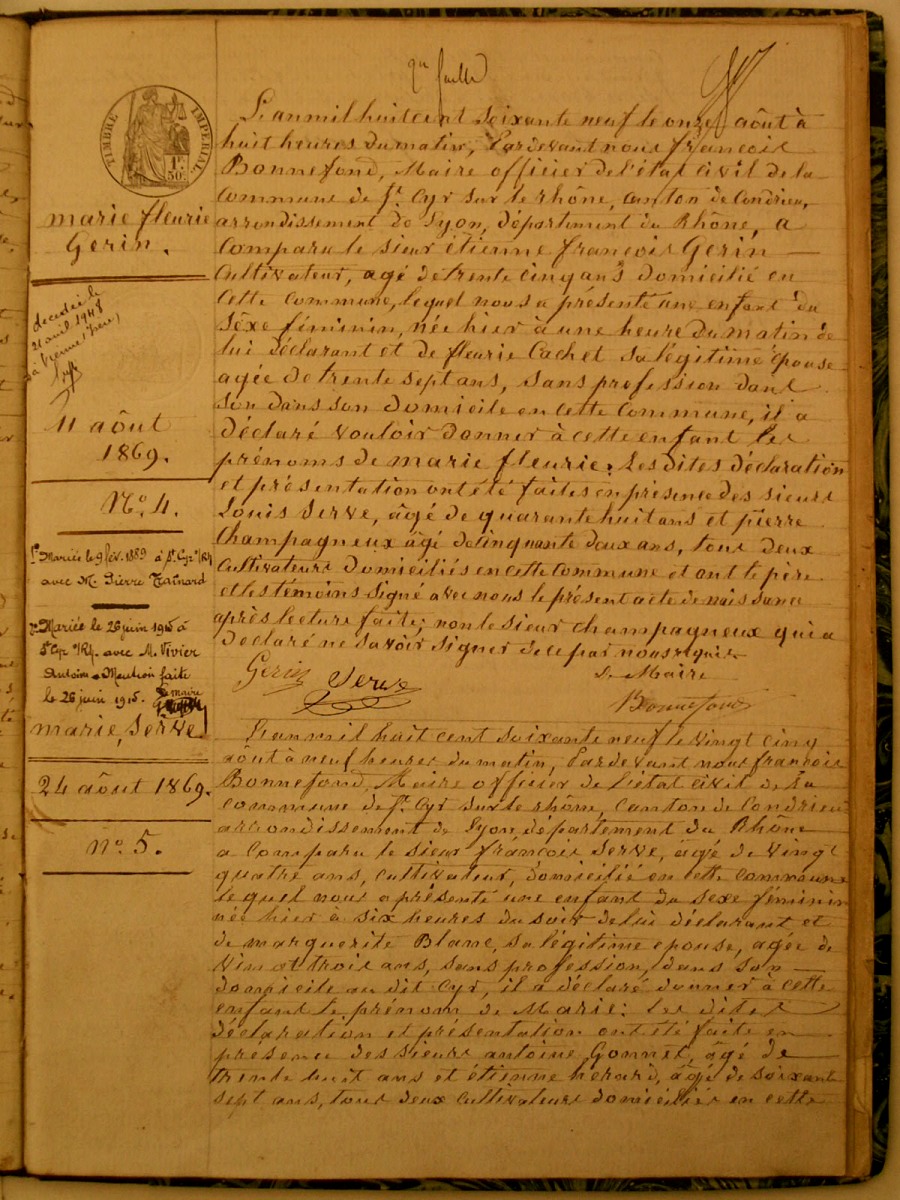 2me feuille
TIMBRE IMPERIAL
1F.
50c
marie fleurie
Gerin.
decedée le
21 avril 1948
à Vienne (Isère)
11 août
1869.
N° 4.
1° Mariée le 9 fév. 1889 à St Cyr s/Rh
avec M. Pierre
2° Mariée le 26 juin 1915 à
St Cyr s/Rh. avec M. Vivier
Antoine. Mention faite
le 26 juin 1915. Le maire
L'an mil huit cent soixante neuf le onze août à
huit heures du matin, Pardevant nous françois
Bonnefond, Maire officier de l'état civil de la
commune de St Cyr sur le rhône, canton de Condrieu,
arrondissement de Lyon, département du Rhône, a
comparu le sieur étienne françois Gerin
Cultivateur, agé de trente cinq ans domicilié en
cette commune, lequel nous a présenté une enfant du
sêxe féminin, née hier à une heure du matin de
lui déclarant et de fleurie Cachet sa légitime épouse
agée de trente sept ans, sans profession dans
son dans son domicile en cette commune, il a
déclaré vouloir donner à cette enfant les
prénoms de marie fleurie. Les dites déclaration
et présentation ont été faites en présence des sieurs
Louis Serve, âgé de quarante huit ans et pierre
Champagneux âgé de cinquante deux ans, tous deux
Cultivateurs domiciliés en cette commune et ont le père
et les témoins signé avec nous le présent acte de naissance
après lecture faite; non le sieur champagneux qui a
déclaré ne savoir signer de ce par nous requis
Le Maire
Gerin Serve
Bonnefond
marie, Serve
24 août 1869.
N° 5.
L'an mil huit cent soixante neuf le vingt cinq
août à neuf heures du matin, Pardevant nous françois
Bonnefond, Maire officier de l'état civil de la
commune de St Cyr sur le rhône, canton de Condrieu
arrondissement de Lyon, département du Rhône
a comparu le sieur françois Serve, agé de vingt
quatre ans, cultivateur, domicilié en cette commune
lequel nous a présenté une enfant du sexe féminin
née hier à six heures du soir de lui déclarant et
de marguerite Blanc, sa légitime épouse, agée de
vingt trois ans, sans profession, dans son
domicile au dit Cyr, il a déclaré donner à cette
enfant le prénom de Marie: Les dites
déclaration et présentation ont été faite en
présence des sieurs antoine Gonnet, âgé de
trente huit ans et étienne herard, âgé de soixante
sept ans, tous deux cultivateurs domiciliés en cette